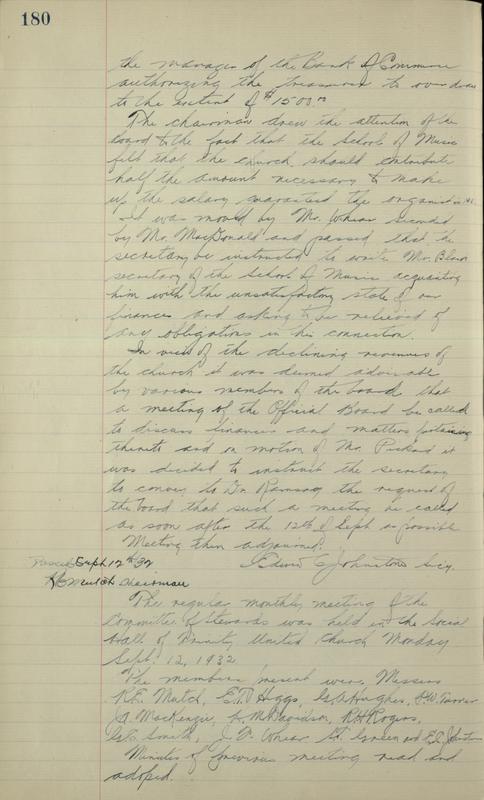 180
the manager of the Bank of Commerce
authorizing the treasurer to overdraw
to the extent of $1500.00
The chairman drew the attention of the
board to the fact that the School of Music
felt that the church should contribute
half the amount necessary to make
up the salary guaranteed the organist
It was moved by Mr. Whear seconded
by Mr. MacDonald and passed that the
secretary be instructed to write Mr. Blair
secretary of the School of Music acquainting
him with the unsatisfactory state of our
finances and asking to be relieved of
any obligations in his connection.
In view of the declining revenues of
the church it was deemed advisable
by various members of the board that
a meeting of the Official Board be called
to discuss finances and matters pertaining
thereto and on motion of Mr. Pickard it
was decided to instruct the secretary
to convey to Dr. Ramsay the request of
the board that such a meeting be called
as soon after the 12th of Sept as possible
Meeting then adjourned.
Passed Sept 12th 32
Edwin C Johnstone Secy.
RE Mutch Chairman
The regular monthly meeting of the
Committee of Stewards was held in the Social
Hall of Trinity United Church Monday
Sept. 12, 1932
The members present were Messrs
R.E. Mutch, E.T. Higgs, G.A. Hughes, P.W. Turner
J.A. MacKenzie, L. M. Davidson, R.H. Rogers,
Smith, J. D. Whear Green and E.C. Johnstone
Minutes of previous meeting read and
adopted.